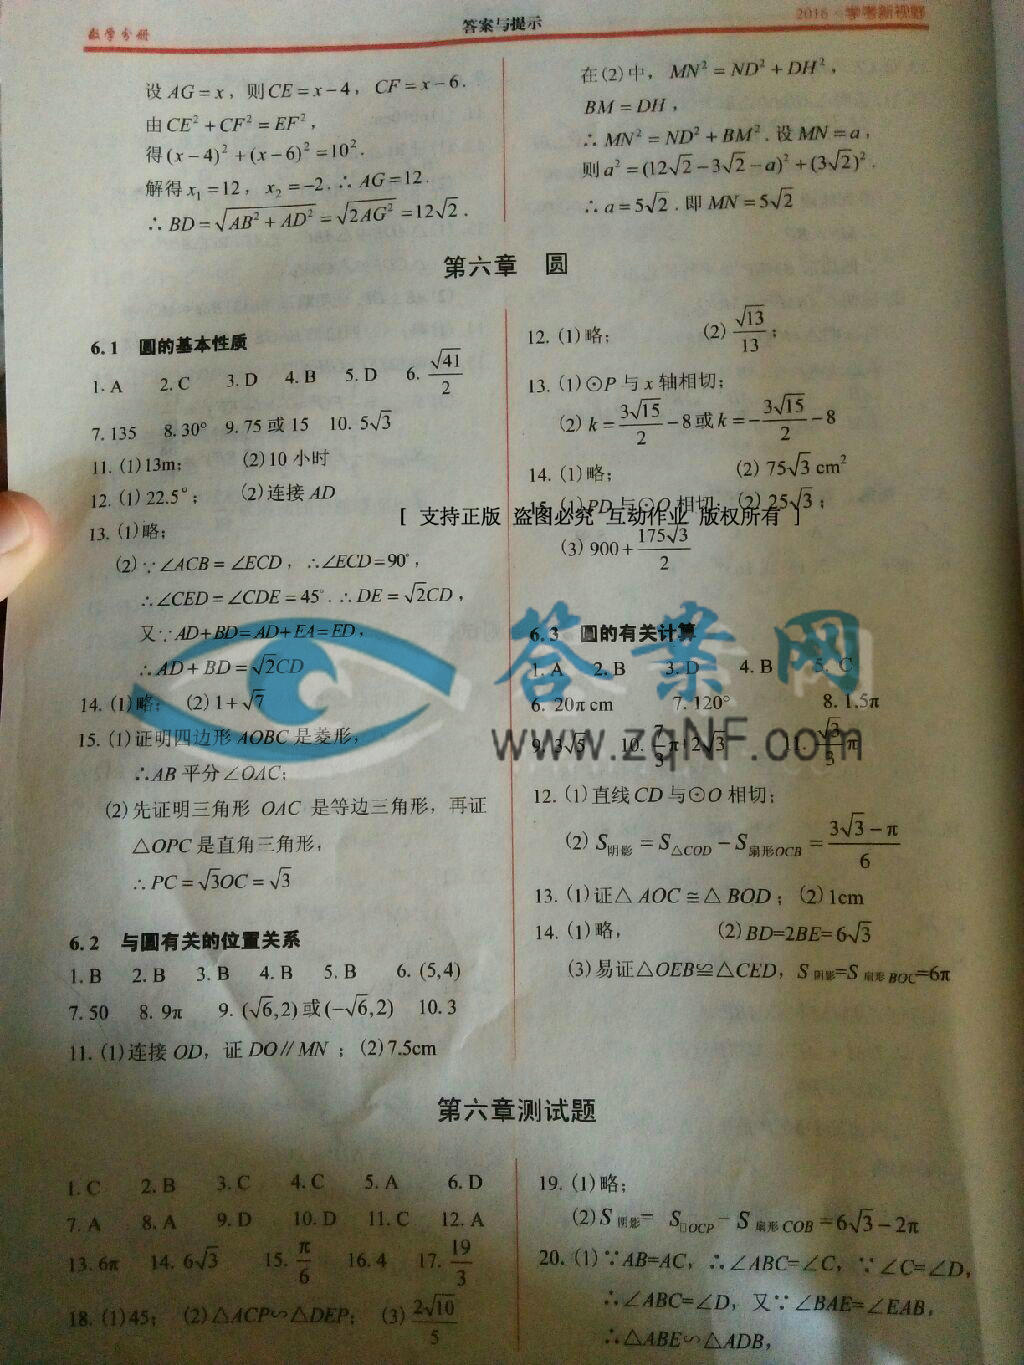 数学分册
答案与提示
2016·学考新视野
设 AG=x，则CE=x-4，CF=x-6.
由CE²+CF²=EF²，
得(x-4)²+(x-6)²=10².
解得x₁=12，x₂=-2.∴AG=12.
∴BD=√(AB²+AD²)=√(2AG²)=12√2.
在(2)中，MN²=ND²+DH²，
BM=DH，
∴MN²=ND²+BM².设MN=a，
则a²=(12√2-3√2-a)²+(3√2)².
∴a=5√2.即MN=5√2
第六章 圆
6.1 圆的基本性质
1.A 2.C 3.D 4.B 5.D 6.√41/2
7.135 8.30° 9.75或15 10.5√3
11.(1)13m; (2)10小时
12.(1)22.5°; (2)连接AD
13.(1)略;
(2)∵∠ACB=∠ECD，∴∠ECD=90°，
∴∠CED=∠CDE=45°.∴DE=√2CD，
又∵AD+BD=AD+EA=ED，
∴AD+BD=√2CD
14.(1)略; (2)1+√7
15.(1)证明四边形AOBC是菱形，
∴AB平分∠OAC;
(2)先证明三角形 OAC 是等边三角形，再证
△OPC是直角三角形，
∴PC=√3OC=√3
6.2 与圆有关的位置关系
1.B 2.B 3.B 4.B 5.B 6.(5,4)
7.50 8.9π 9.(√6,2)或(-√6,2) 10.3
11.(1)连接OD，证DO∥MN；(2)7.5cm
12.(1)略; (2)√13/13;
13.(1)⊙P与x轴相切;
(2)k=3√15/2-8或k=-3√15/2-8
14.(1)略; (2)75√3cm²
15.(1)PD与⊙O相切;(2)25√3;
[ 支持正版 盗图必究 互动作业 版权所有 ]
(3)900+175√3/2
6.3 圆的有关计算
1.A 2.B 3.D 4.B 5.C
6.20πcm 7.120° 8.1.5π
9.3√5 10.7/3π+2√3 11.√3/3π
12.(1)直线CD与⊙O相切;
(2)S阴影=S△COD-S扇形OCB=(3√3-π)/6
13.(1)证△AOC≌△BOD；(2)1cm
14.(1)略, (2)BD=2BE=6√3
(3)易证△OEB≌△CED，S阴影=S扇形BOC=6π
答案网
www.zqNF.com
第六章测试题
1.C 2.B 3.C 4.C 5.A 6.D
7.A 8.A 9.D 10.D 11.C 12.A
13.6π 14.6√3 15.π/6 16.4 17.19/3
18.(1)45; (2)△ACP∽△DEP; (3)2√10/5
19.(1)略;
(2)S阴影=S□OCP-S扇形COB=6√3-2π
20.(1)∵AB=AC，∴∠ABC=∠C，∵∠C=∠D，
∴∠ABC=∠D，又∵∠BAE=∠EAB，
∴△ABE∽△ADB，